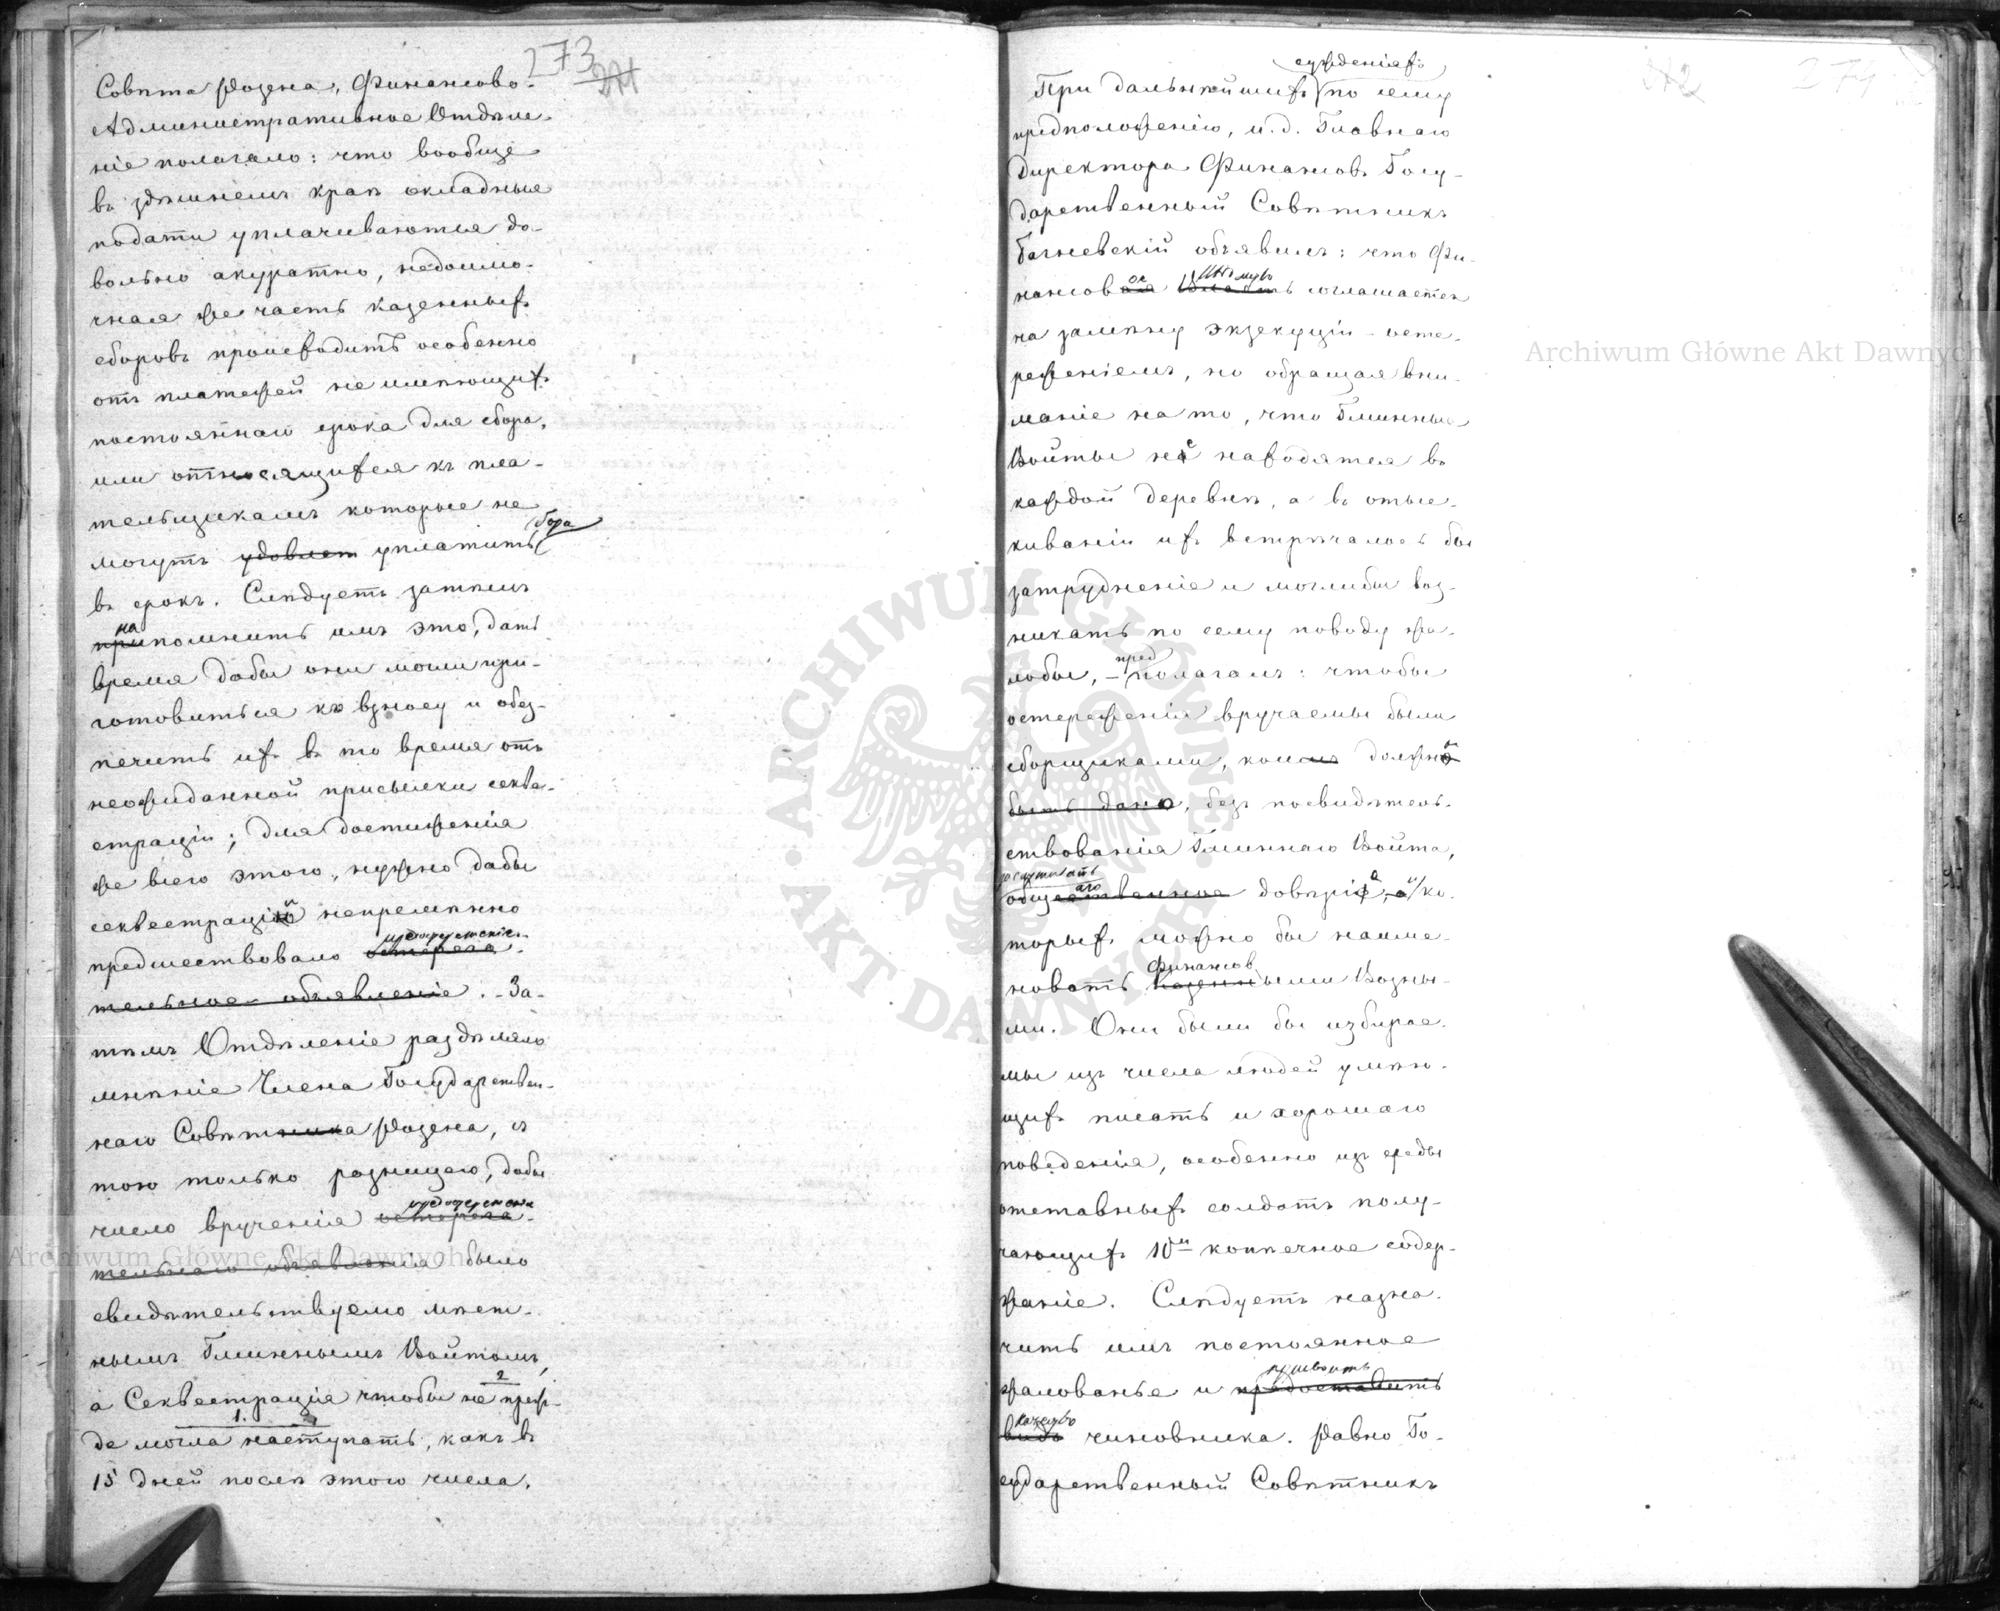 273
Совѣта Розена, Финансово-
Административное Отдѣле-
ніе полагало: что вообще
въ здѣшнемъ краѣ окладные
подати уплачиваются до-
вольно акуратно, недоимо-
чная же часть казенныхъ
сборовъ происходитъ особенно
отъ платежей не имѣющихъ
постояннаго срока для сбора,
или относящихся къ пла-
тельщикамъ которые не
могутъ удовлет уплатить сбора
въ срокъ. Слѣдуетъ затѣмъ
на
припомнить имъ это, дать
время дабы они могли при-
готовиться къ взносу и обез-
печить ихъ въ то время отъ
неожиданной присылки секве-
страціи; для достиженія
же всего этого, нужно дабы
секвестраціи непремѣнно
предостереженіе.
предшествовало остерега-
тельное объявленіе. - За-
тѣмъ Отдѣленіе раздѣляло
мнѣніе Члена Государствен-
наго Совѣтника Розена, съ
тою только разницею, дабы
предостереженія
число врученія остерега-
тельнаго объявленія было
свидѣтельствуемо мѣст-
нымъ Гминнымъ Войтомъ,
2
а Секвестрація чтобы не преж-
1.
де могла наступать, какъ въ
15 дней послѣ этого числа.
274
сужденіяхъ
При дальнѣйшихъ по сему
предположенію, и. д. Главнаго
Директора Финансовъ Госу-
дарственный Совѣтникъ
Багневскій объявилъ: что Фи-
нансовое соглашается
на замѣну экзекуціи - осте-
реженіемъ, но обращая вни-
маніе на то, что Гминные
Войты не находятся въ
каждой деревнѣ, а въ отыс-
киваніи ихъ встрѣчалось бы
затрудненіе и моглибы воз-
никать по сему поводу жа-
пред
лобы, - полагалъ: чтобы
остереженія вручаемы были
сборщиками, кои должны
быть дано, безъ посвидѣтель-
ствованія Гминнаго Войта,
общественное довѣрія, и ко-
торыхъ можно бы наиме-
Финансов
новать казенными Возны-
ми. Они были бы избирае-
мы изъ числа людей умѣю-
щихъ писать и хорошаго
поведенія, особенно изъ среды
отставныхъ солдатъ полу-
чающихъ 10и копѣечное содер-
жаніе. Слѣдуетъ назна-
чить имъ постоянное
присвоить
жалованье и предоставить
качество
видъ чиновника. Равно Го-
сударственный Совѣтникъ
Archiwum Główne Akt Dawnych
Archiwum Główne Akt Dawnych
ARCHIWUM GŁÓWNE AKT DAWNYCH